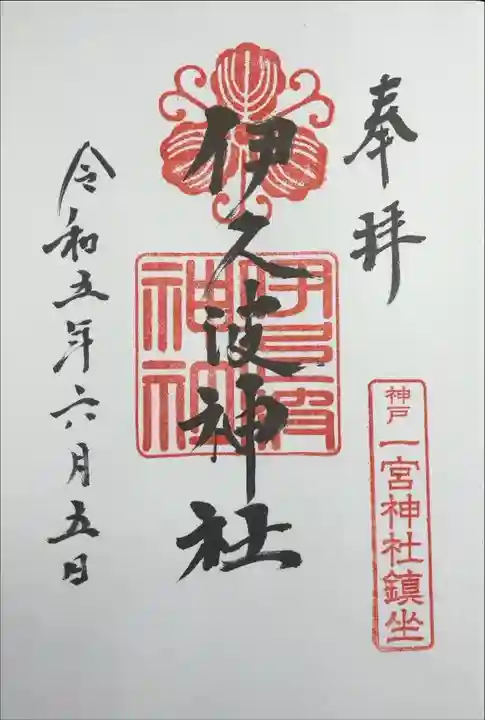 奉拝
神戸 一宮神社鎮坐
伊久波神社
伊久波
神社
令和五年六月五日